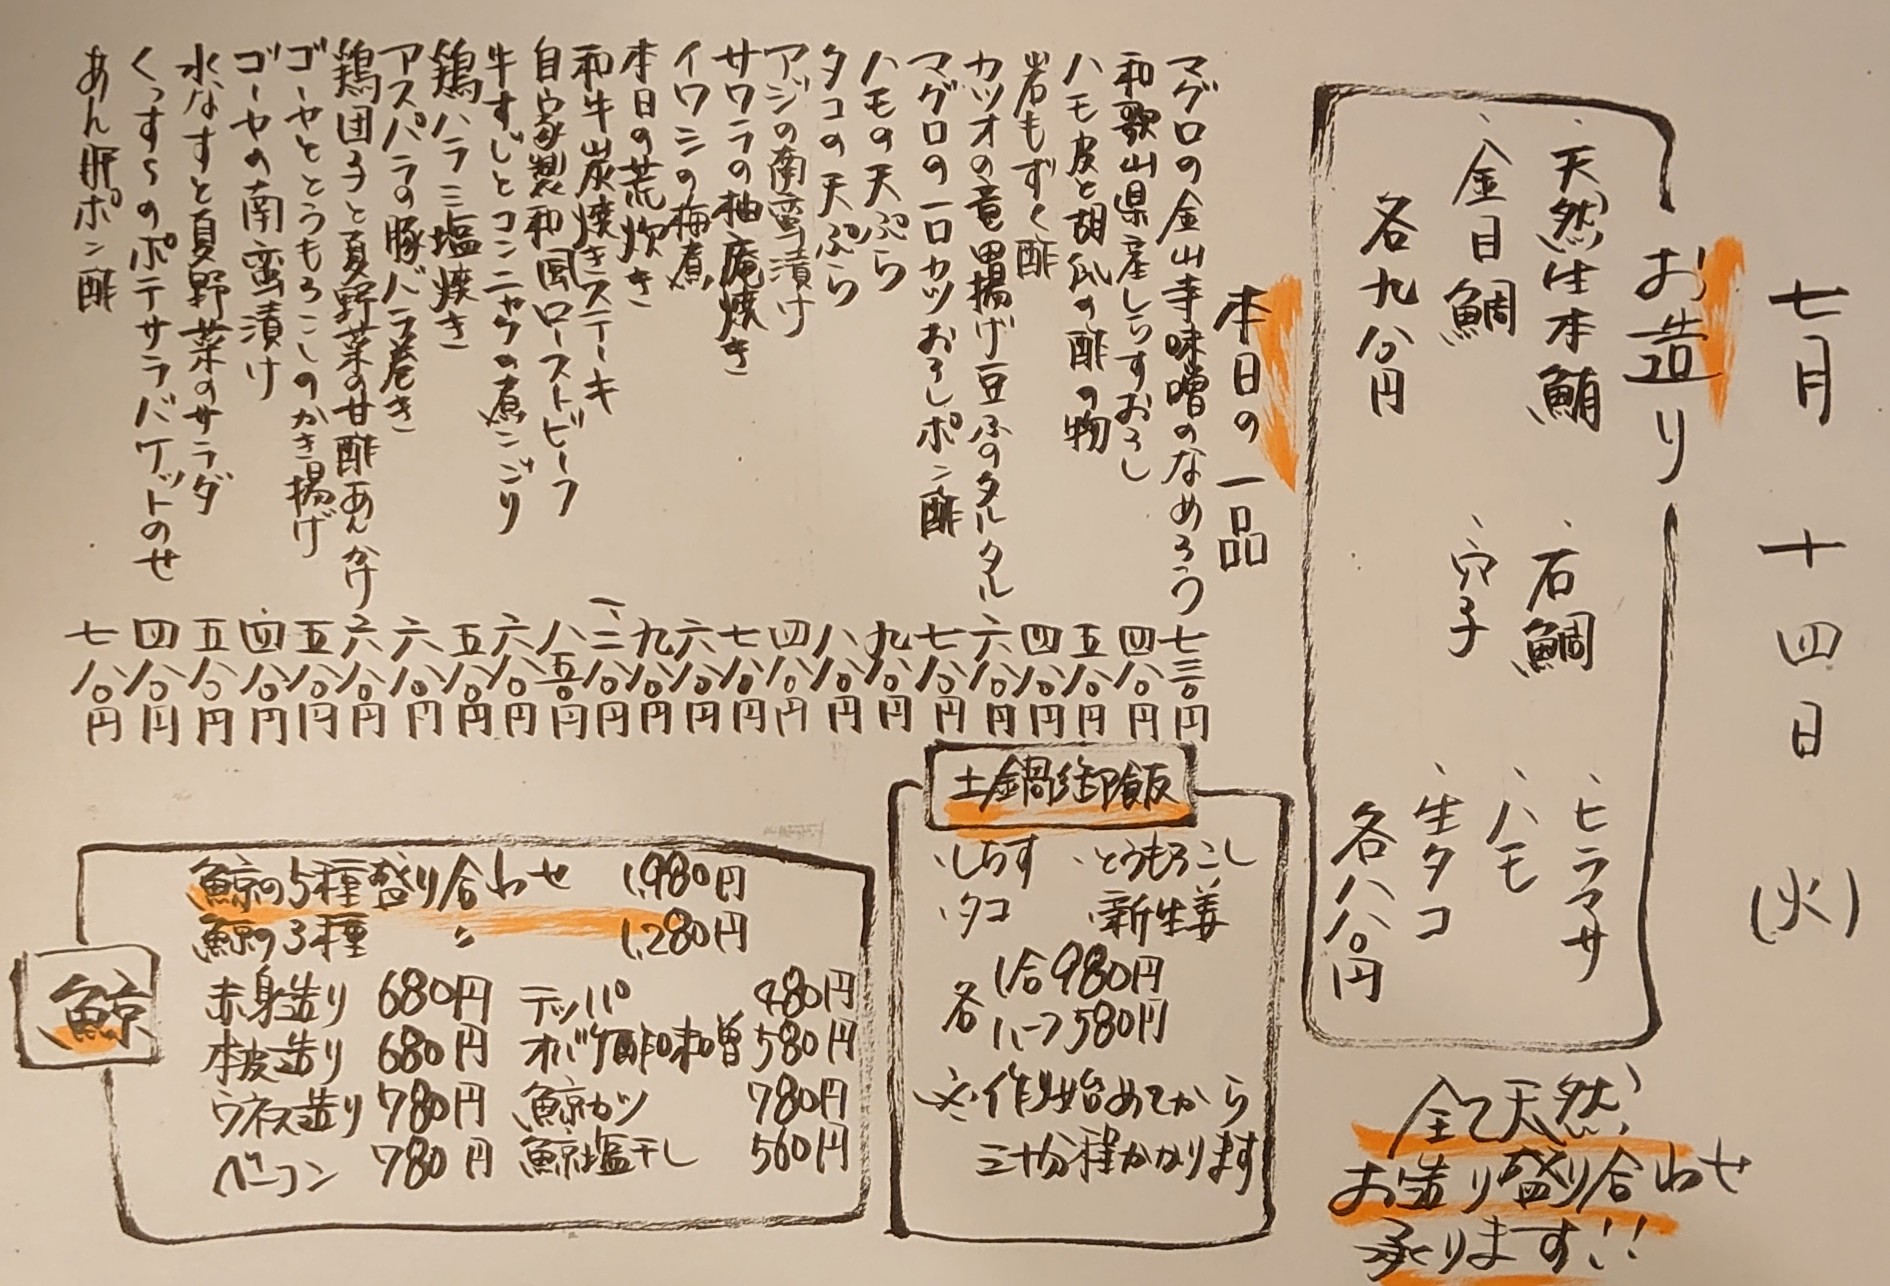 七月十四日(火)
お造り
、天然生本鮪
、石鯛
、ヒラマサ
、金目鯛
、穴子
、ハモ
、生タコ
各九八〇円
各八八〇円
全て天然!
お造り盛り合わせ
承ります!!
本日の一品
マグロの金山寺味噌のなめろう 七三〇円
和歌山県産しらすおろし 四八〇円
ハモ皮と胡瓜の酢の物 五八〇円
岩もずく酢 四八〇円
カツオの竜田揚げ豆ふのタルタル 六八〇円
マグロの一口カツおろしポン酢 七八〇円
ハモの天ぷら 九八〇円
タコの天ぷら 八八〇円
アジの南蛮漬け 四八〇円
サワラの柚庵焼き 七八〇円
イワシの梅煮 六八〇円
本日の荒炊き 九八〇円
和牛炭焼きステーキ 一、二八〇円
自家製和風ローストビーフ 八五〇円
牛すじとコンニャクの煮こごり 六八〇円
鶏ハラミ塩焼き 五八〇円
アスパラの豚バラ巻き 六八〇円
鶏団子と夏野菜の甘酢あんかけ 六八〇円
ゴーヤととうもろこしのかき揚げ 五八〇円
ゴーヤの南蛮漬け 四八〇円
水なすと夏野菜のサラダ 五八〇円
くっすらのポテサラバケットのせ 四八〇円
あん肝ポン酢 七八〇円
土鍋御飯
、しらす 、とうもろこし
、タコ 、新生姜
各 1合980円
ハーフ580円
※作り始めてから
三十分程かかります
鯨
鯨の5種盛り合わせ 1,980円
鯨の3種 〃 1,280円
赤身造り 680円 テッパ 480円
本皮造り 680円 オバケ酢味噌 580円
ウネス造り 780円 鯨カツ 780円
ベーコン 780円 鯨塩干し 560円